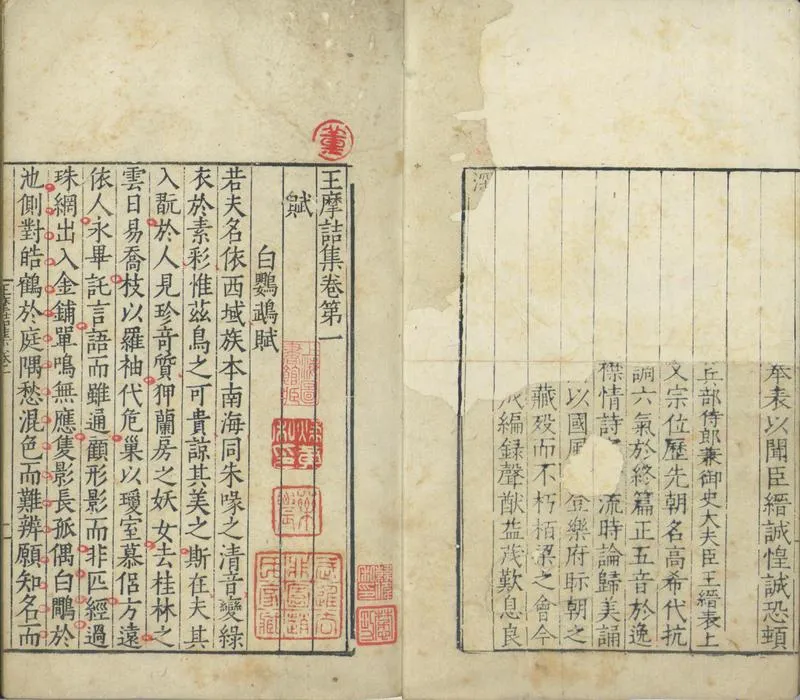 奉表以聞臣縉誠惶誠恐頓
兵部侍郎兼御史大夫臣王縉表上
文宗位歷先朝名高希代抗
調六氣於終篇正五音於逸
襟情詩 流時論歸美誦
以國風 金樂府旰朝之
藏歿而不朽柏梁之會今
編録聲猷益茂歎息良
薰
王摩詰集卷第一
賦
白鸚鵡賦
若夫名依西域族本南海同朱喙之清音變綠
衣於素彩惟茲鳥之可貴諒其美之斯在夫其
入翫於人見珍奇質狎蘭房之妖女去桂林之
雲日易喬枝以羅袖代危巢以瓊室慕侶方遠
依人永畢託言語而雖通顧形影而非匹經過
珠網出入金鋪單鳴無應隻影長孤偶白鷴於
池側對皓鶴於庭隅愁混色而難辨願知名而